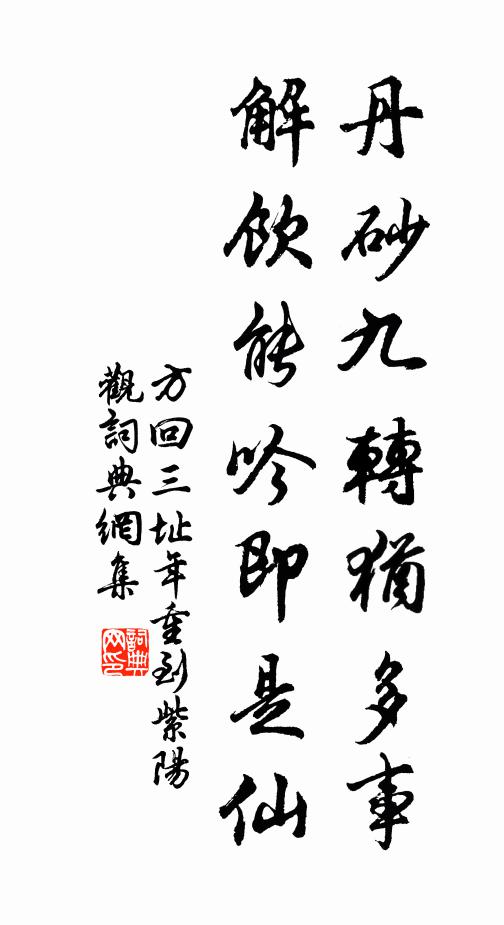 丹砂九轉猶多事
解飲能吟即是仙
方回三址年重到紫陽
觀詞典網集
詞典网印